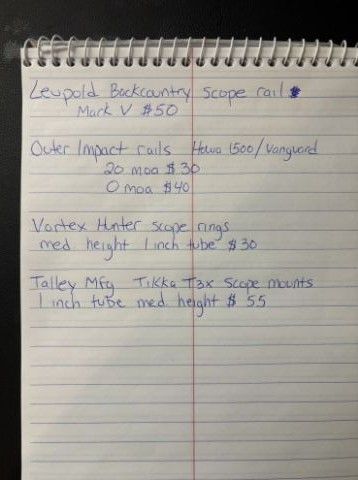 Leupold Backcountry scope rail
Mark V $50
Outer Impact rails Howa 1500/Vanguard
20 moa $30
0 moa $40
Vortex Hunter scope rings
med. height 1 inch tube $30
Talley Mfg Tikka T3x scope mounts
1 inch tube med. height $55